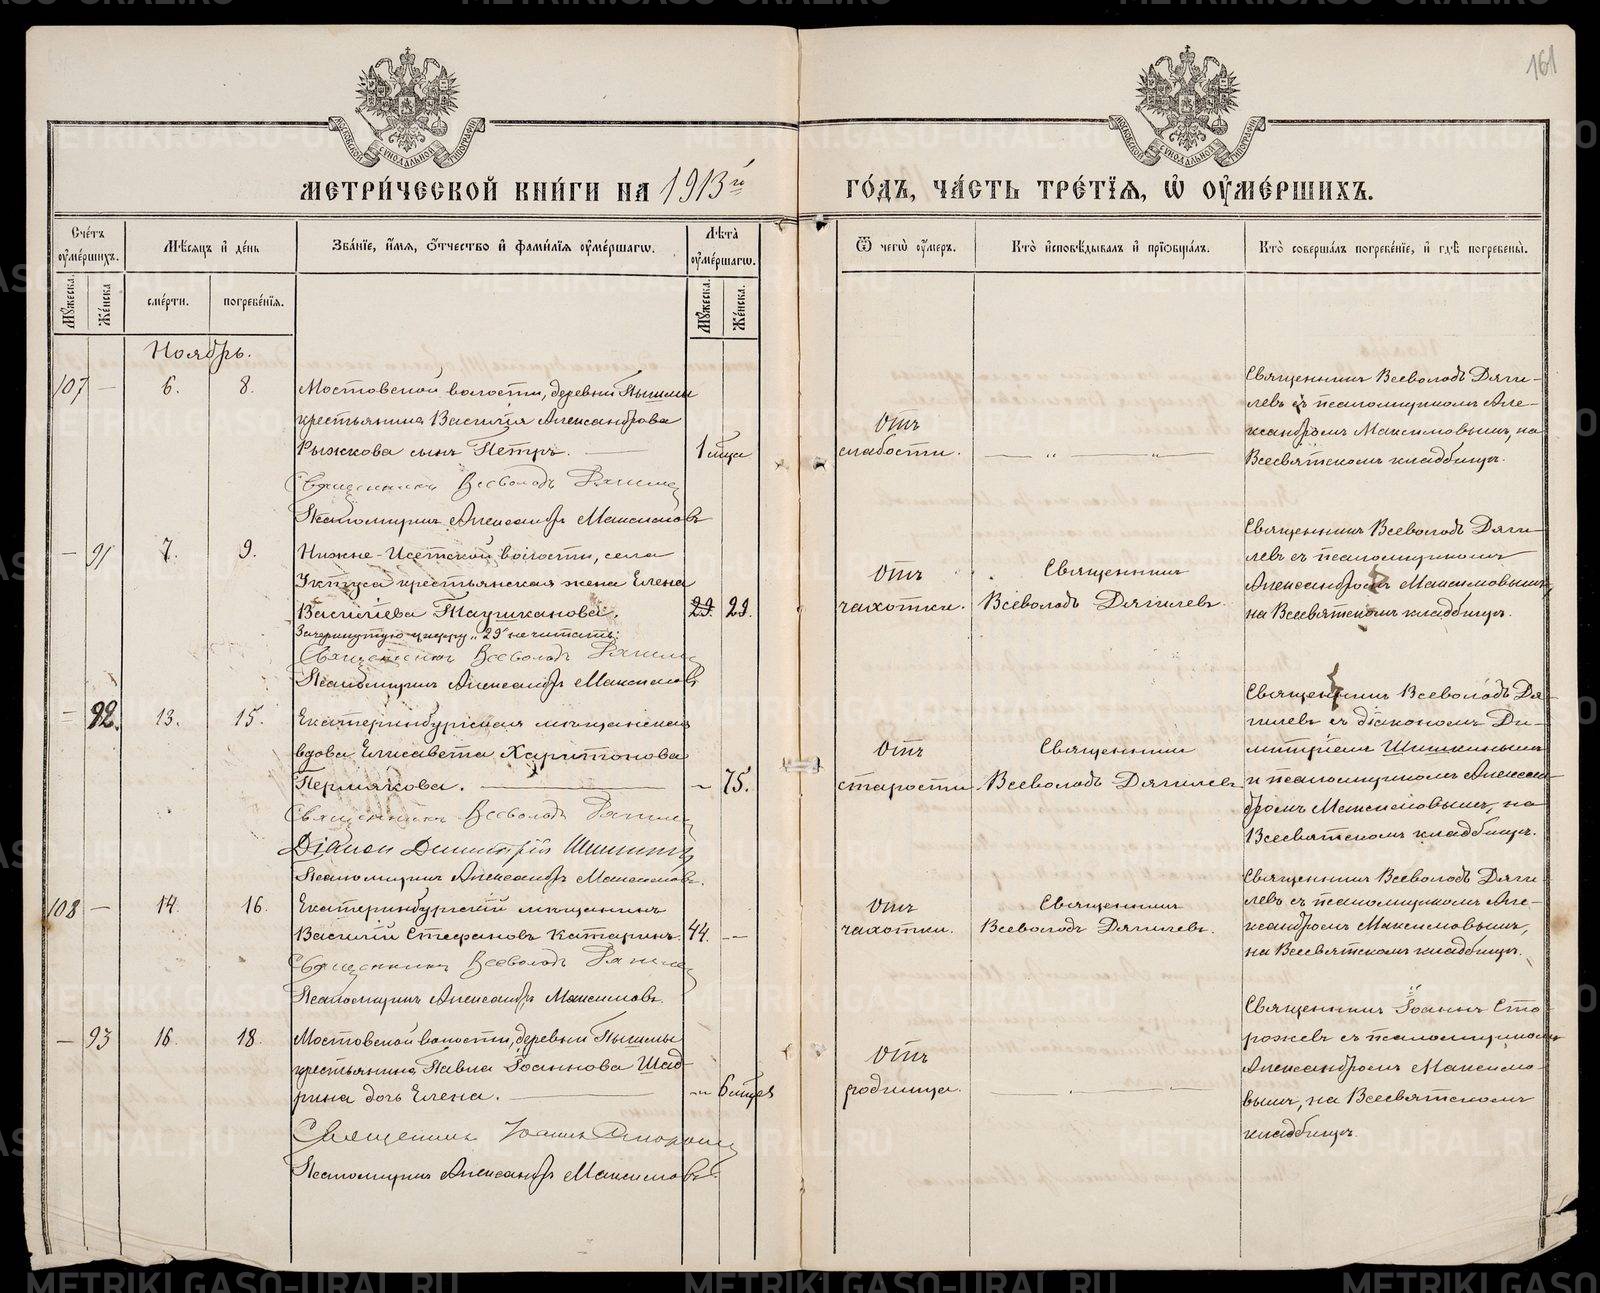 161
МОСКОВСКОЙ СѴНОДАЛЬНОЙ ТИПОГРАФІИ
МОСКОВСКОЙ СѴНОДАЛЬНОЙ ТИПОГРАФІИ
МЕТРИ́ЧЕСКОЙ КНИ́ГИ НА 1913й
ГО́ДЪ, ЧА́СТЬ ТРЕ́ТІѦ, Ѡ҆ ОУ҆МЕ́РШИХЪ.
Сче́тъ оу҆ме́ршихъ.
Мѣ́сяцъ и҆ де́нь
Зва́нїе, и҆́мя, о҆́тчество и҆ фами́лїя оу҆ме́ршагѡ.
Лѣ́та̀ оу҆ме́ршагѡ.
Ѿ чегѡ̀ оу҆́меръ.
Кто̀ и҆сповѣ́дывалъ и҆ прїѡбща́лъ.
Кто̀ соверша́лъ погребе́нїе, и҆ гдѣ̀ погребены̀.
Мꙋ́жеска.
Же́нска
сме́рти.
погребе́нїя.
Мꙋ́жеска.
Же́нска.
Ноябрь.
107 — 6. 8.
Мостовской волости, деревни Пышмы
крестьянина Василія Александрова
Рыжкова сынъ Петръ. — 1 м͠ца
Священникъ Всеволодъ Дягилев
Псаломщикъ Александръ Максимовъ
Отъ
слабости.
— „ — „ —
Священникъ Всеволодъ Дяги-
левъ съ псаломщикомъ Але-
ксандромъ Максимовымъ, на
Всесвятскомъ кладбищѣ.
— 91 7. 9.
Нижне-Исетской волости, села
Уктуса крестьянская жена Елена
Василiева Таушканова. 29. 29.
Зачеркнутую цифру „29" не читать:
Священникъ Всеволодъ Дягилев
Псаломщикъ Александръ Максимовъ
Отъ
чахотки.
Священникъ
Всеволодъ Дягилевъ.
Священникъ Всеволодъ Дяги-
левъ съ псаломщикомъ
Александромъ Максимовымъ,
на Всесвятскомъ кладбищѣ.
— 92. 13. 15.
Екатеринбургская мѣщанская
вдова Елисавета Харитонова
Пермякова. — — 75.
Священникъ Всеволодъ Дягилев
Діакон Димитрій Шишкинъ
Псаломщикъ Александръ Максимовъ.
Отъ
старости
Священник
Всеволодъ Дягилевъ
Священникъ Всеволодъ Дя-
гилевъ съ діакономъ Ди-
митріемъ Шишкинымъ
и псаломщикомъ Алексан-
дромъ Максимовымъ, на
Всесвятскомъ кладбищѣ.
108 — 14. 16.
Екатеринбургскій мѣщанинъ
Василій Стефановъ Катаринъ. 44. —
Священникъ Всеволодъ Дягилев
Псаломщикъ Александръ Максимовъ.
Отъ
чахотки.
Священникъ
Всеволодъ Дягилевъ.
Священникъ Всеволодъ Дяги-
левъ съ псаломщикомъ Але-
ксандромъ Максимовымъ,
на Всесвятскомъ кладбищѣ.
— 93 16. 18.
Мостовской волости, деревни Пышмы
крестьянина Павла Іоаннова Шад-
рина дочь Елена. — — 6 м͠цев
Священник Іоанн Сторожев
Псаломщикъ Александръ Максимовъ.
Отъ
родимца.
— . — „ —
Священникъ Іоаннъ Сто-
рожевъ съ псаломщикомъ
Александромъ Максимо-
вымъ, на Всесвятскомъ
кладбищѣ.
METRIKI.GASO-URAL.RU